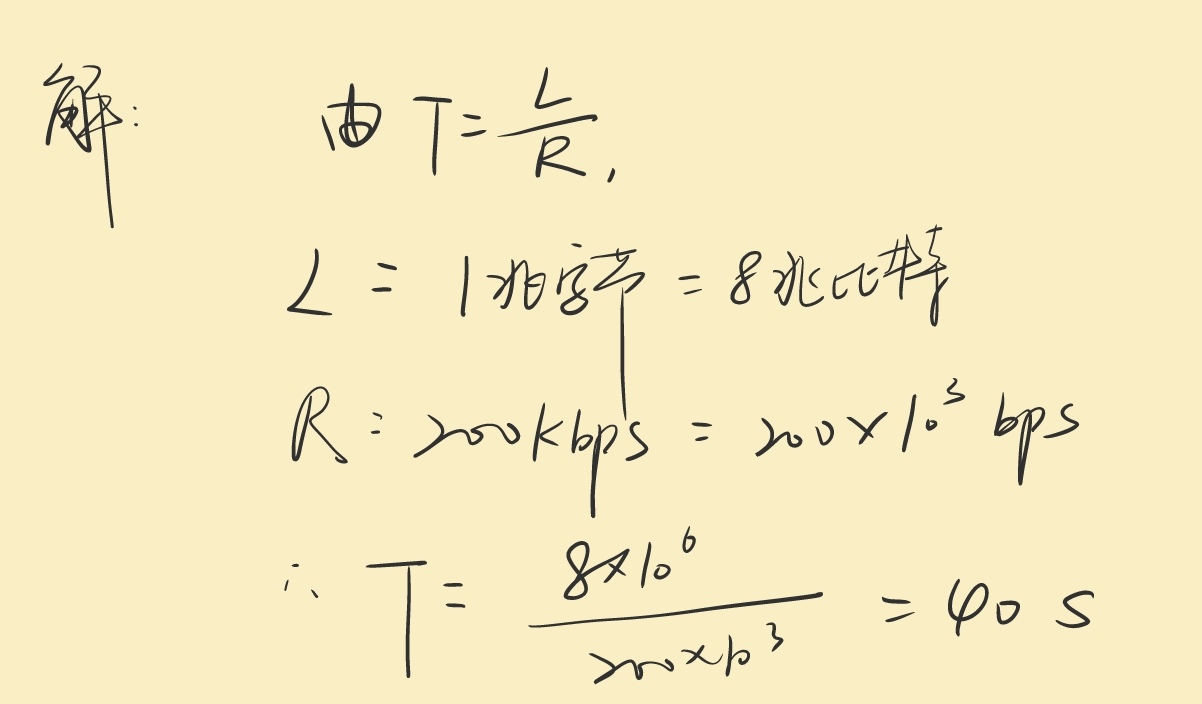 解: 由 T = L/R,
L = 1兆字节 = 8兆比特
R = 200kbps = 200×10³ bps
∴ T = 8×10⁶/200×10³ = 40 s